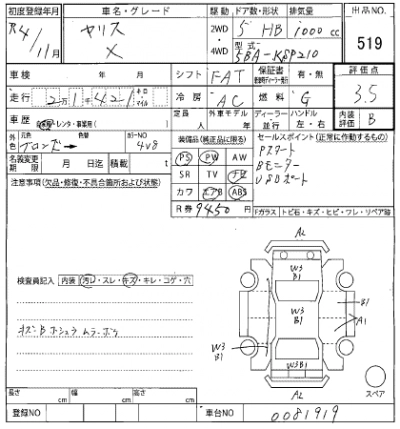 初度登録年月 車名・グレード 駆動 ドア数・形状 排気量 出品NO.
R4/11月 ヤリス X 2WD 4WD 5 HB 1000 cc 519
型式 5BA-KSP210
車検 年 月 シフト FAT 保証書 有・無 評価点
走行 2万1千421 キロ マイル 冷房 AC 燃料 G 3.5
車歴 レンタ・事業用 定員 人 外車モデル 年 ディーラー 並行 ハンドル 左・右 内装評価 B
外色 元色 色替 カラーNO 4V8
装備品(純正品に限る) セールスポイント(正常に作動するもの)
名義変更期限 月 日迄 積載 t
PS PW AW
Pスタート
SR TV ナビ
Bモニター
カワ エアB ABS
USBポート
R券 9450 円
注意事項(欠品・修復・不具合箇所および状態)
Fガラス トビ石・キズ・ヒビ・ワレ・リペア跡
AL
W3 B1
検査員記入 内装 汚レ・スレ・キズ・キレ・コゲ・穴
W3 B1
B1
A1
W3 B1
W3B1
AL
スペア
長さ cm 幅 cm 高さ cm
登録NO 車台NO 0081919